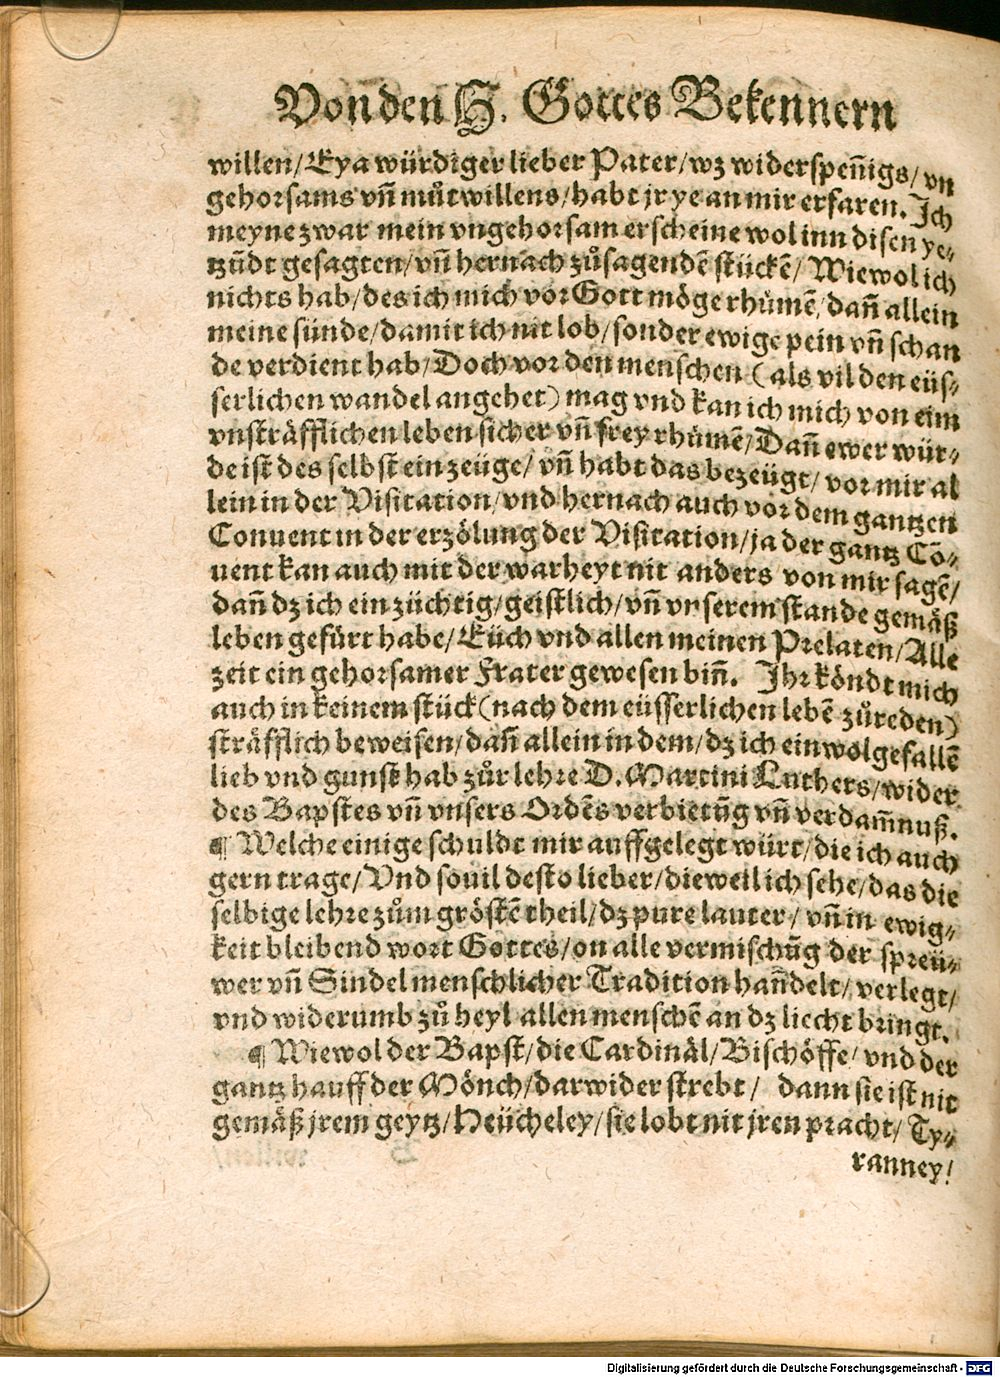 Von den H. Gottes Bekennern
willen/ Eya würdiger lieber Pater/ wz widerspeñigs/ vn
gehorsams vñ můtwillens/ habt jr ye an mir erfaren. Ich
meyne zwar mein vngehorsam erscheine wol inn disen ye⸗
tzũdt gesagten/ vñ hernach zůsagendẽ stückẽ/ Wiewol ich
nichts hab/ des ich mich vor Gott möge rhůmẽ/ dañ allein
meine sünde/ damit ich nit lob/ sonder ewige pein vñ schan
de verdient hab/ Doch vor den menschen (als vil den eüs⸗
serlichen wandel angehet) mag vnd kan ich mich von eim
vnsträfflichen leben sicher vñ frey rhůmẽ/ Dañ ewer wür⸗
de ist des selbst ein zeüge/ vñ habt das bezeügt/ vor mir al
lein in der Visitation/ vnd hernach auch vor dem gantzen
Conuent in der erzölung der Visitation/ ja der gantz Cõ⸗
uent kan auch mit der warheyt nit anders von mir sagẽ/
dañ dz ich ein züchtig/ geistlich/ vñ vnserem stande gemäß
leben gefürt habe/ Eüch vnd allen meinen Prelaten/ Alle
zeit ein gehorsamer Frater gewesen biñ. Ihr köndt mich
auch in keinem stück (nach dem eüsserlichen lebẽ zůreden)
sträfflich beweisen/ dañ allein in dem/ dz ich ein wolgefallẽ
lieb vnd gunst hab zůr lehre D. Martini Luthers/ wider
des Bapstes vñ vnsers Ordẽs verbietũg vñ verdam̃nuß.
¶ Welche einige schuldt mir auffgelegt würt/ die ich auch
gern trage/ Vnd souil desto lieber/ dieweil ich sehe/ das die
selbige lehre zům gröstẽ theil/ dz pure lauter/ vñ in ewig⸗
keit bleibend wort Gottes/ on alle vermischũg der spreü⸗
wer vñ Sindel menschlicher Tradition hañdelt/ verlegt/
vnd widerumb zů heyl allen menschẽ an dz liecht bringt.
¶ Wiewol der Bapst/ die Cardinäl/ Bischöffe/ vnd der
gantz hauff der Mönch/ darwider strebt/ dann sie ist nit
gemäß jrem geytz/ Heücheley/ sie lobt nit jren pracht/ Ty⸗
ranney/
Digitalisierung gefördert durch die Deutsche Forschungsgemeinschaft - DFG